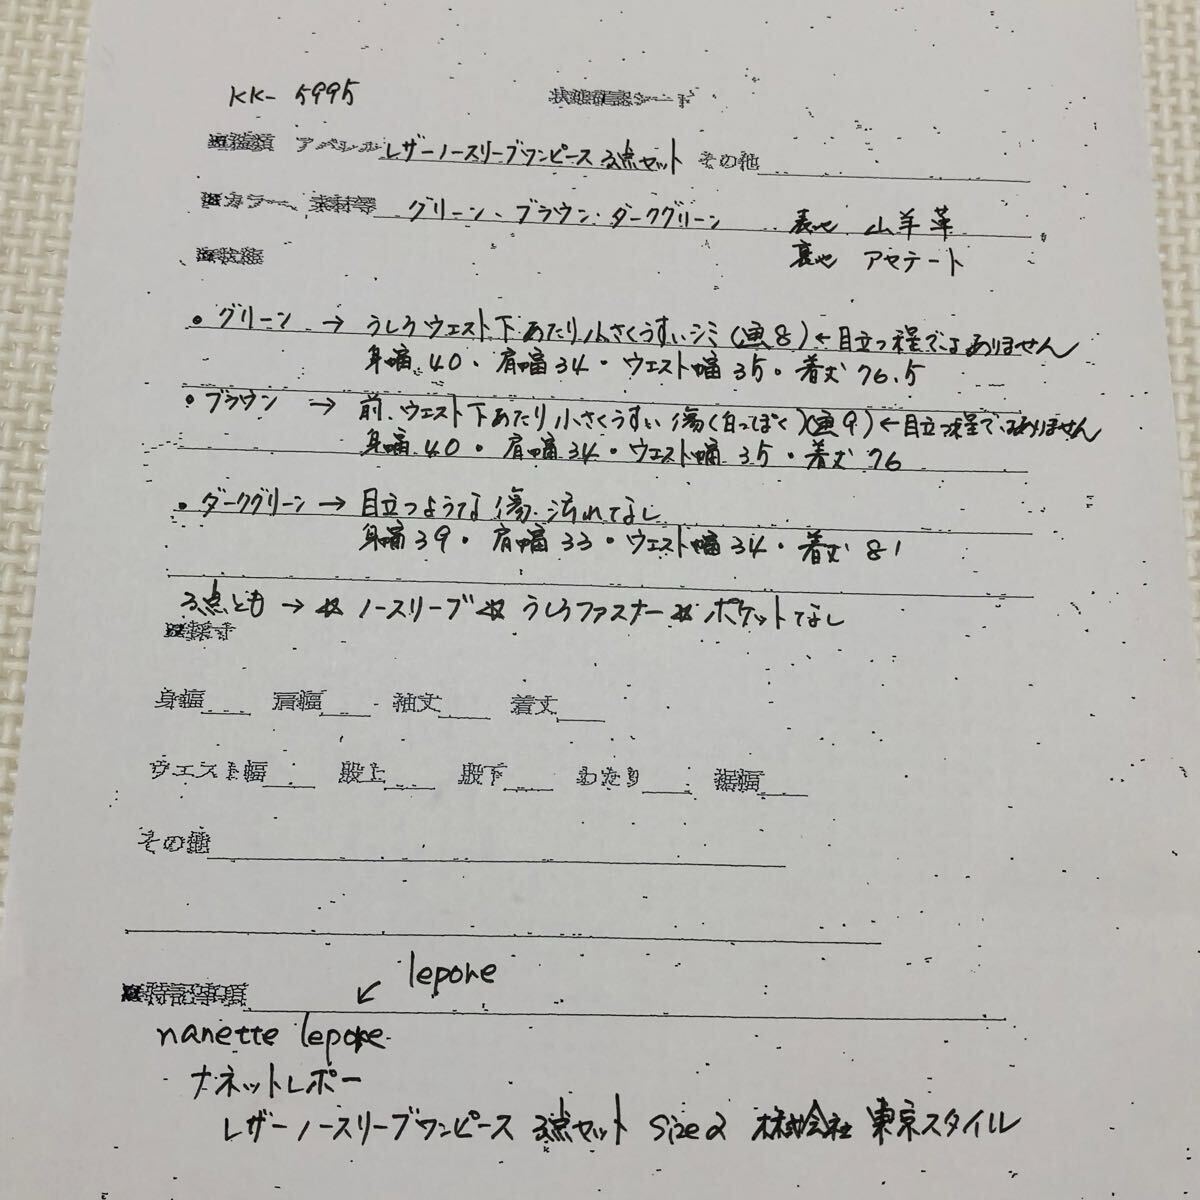 KK- 5995 状態確認シート
※種類 アパレル レザーノースリーブワンピース 3点セット その他
※カラー、素材等 グリーン・ブラウン・ダークグリーン 表地 山羊革
裏地 アセテート
※状態
• グリーン → うしろウエスト下あたり小さくうすいシミ(画8)←目立つ程ではありません
身幅 40・肩幅 34・ウエスト幅 35・着丈 76.5
• ブラウン → 前、ウエスト下あたり小さくうすい傷(白っぽく)(画9)←目立つ程ではありません
身幅 40・肩幅 34・ウエスト幅 35・着丈 76
• ダークグリーン → 目立つような傷、汚れてなし
身幅 39・肩幅 33・ウエスト幅 34・着丈 81
3点とも → ☆ ノースリーブ ☆ うしろファスナー ☆ ポケットなし
※採寸
身幅 肩幅 袖丈 着丈
ウエスト幅 股上 股下 わたり 裾幅
その他
lepore
※特記事項 ↙
nanette lepore
ナネットレポー
レザーノースリーブワンピース 3点セット Size2 株式会社 東京スタイル